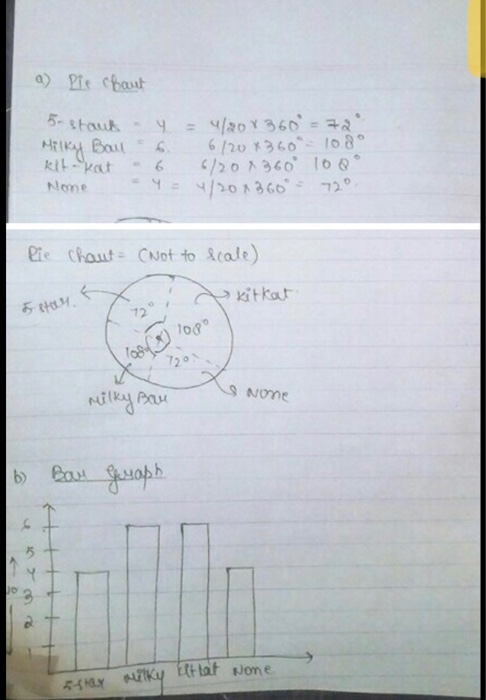 a) Pie Chart
5-stark = 4 = 4/20 x 360° = 72°
Milky Bar = 6 6/20 x 360° = 108°
kit-kat = 6 6/20 x 360° 108°
None = 4 = 4/20 x 360° = 72°
Pie Chart = (Not to Scale)
5-star.
kitkat
72°
108°
108°
72°
Milky Bar
None
b) Bar Graph
6
5
4
3
2
1
5-star Milky kitkat None